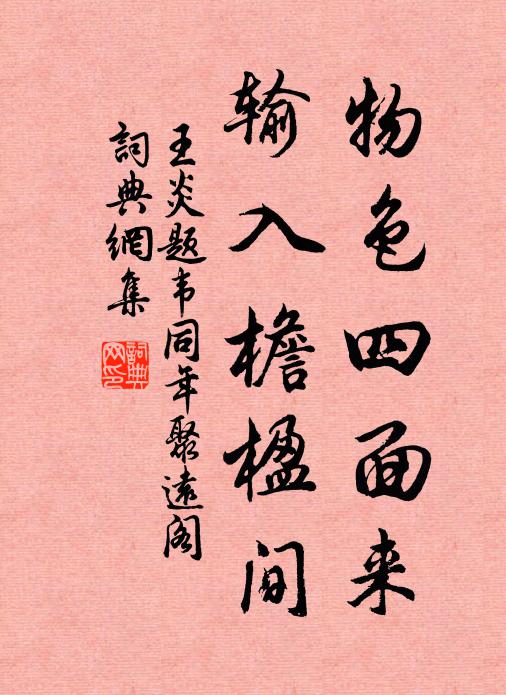 物色四面来
输入檐楹间
王炎题韦同年聚遠阁
詞典網集
詞典网印